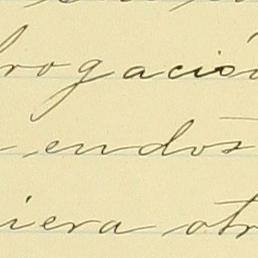 rogació
endos
iera otr